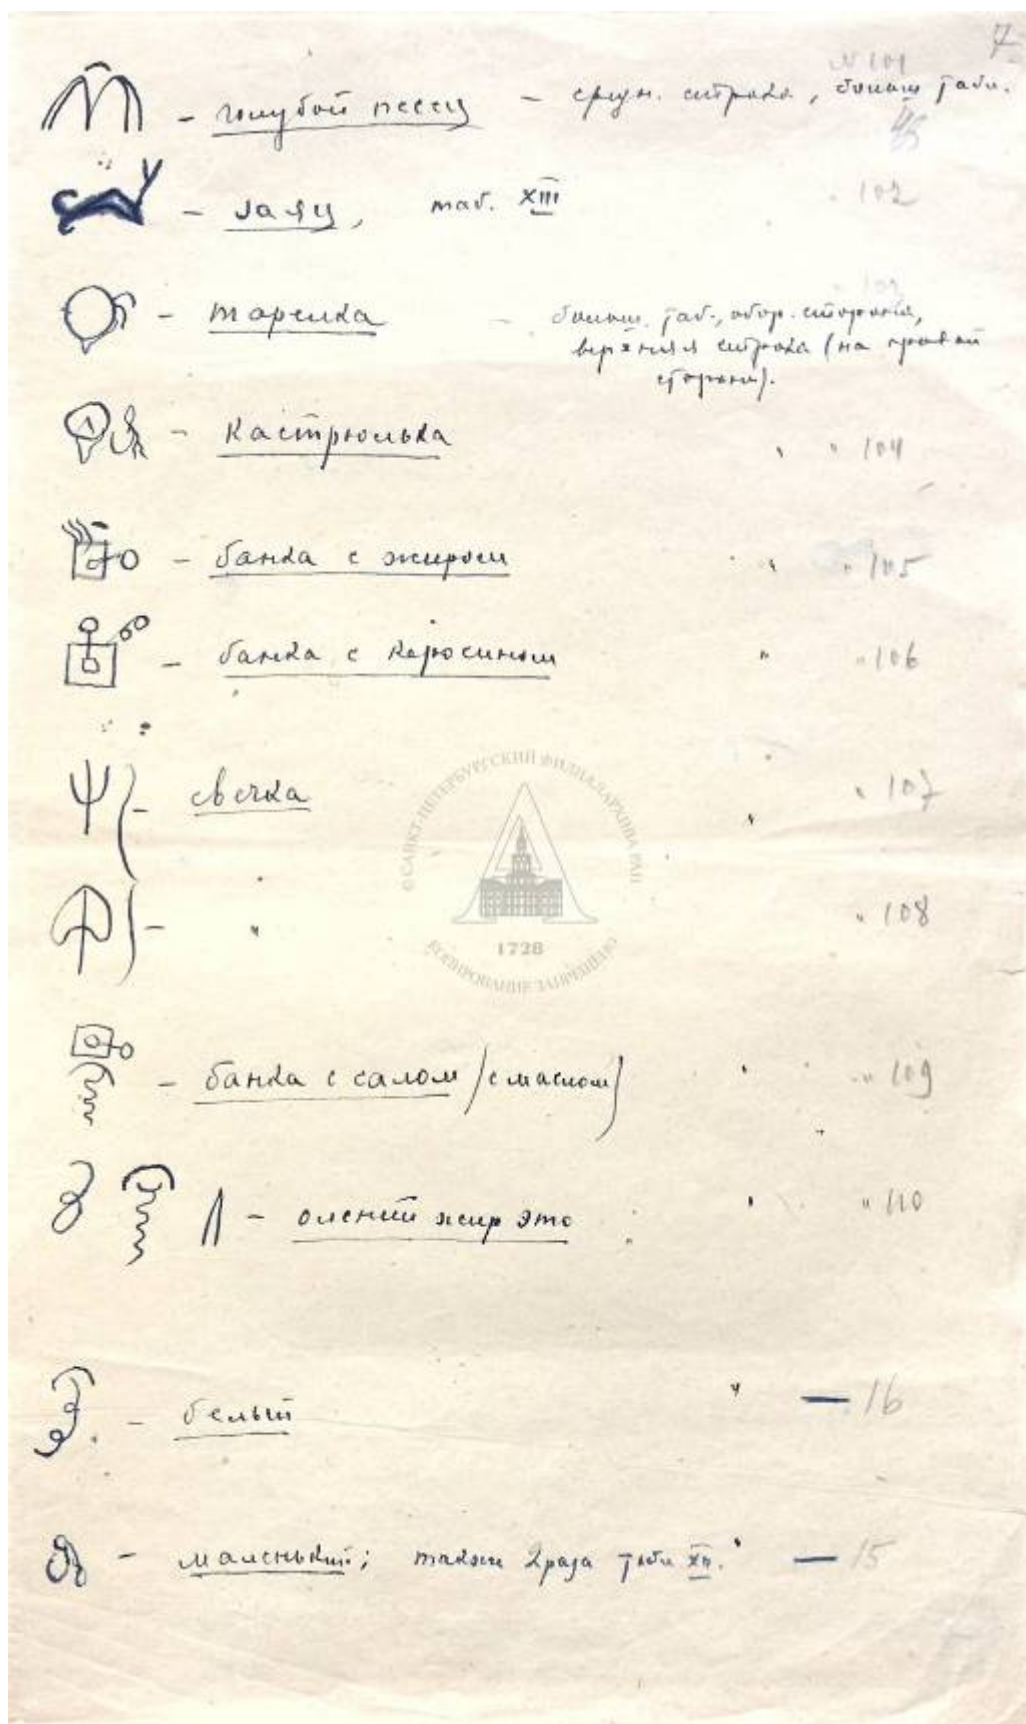 7
N 101
– голубой песец – средн. строка, больш. табл.
– заяц, таб. XIII 102
– тарелка – больш. таб., обор. сторона,
верхняя строка (на правой
стороне).
– Кастрюлька " " 104
– банка с жиром " " 105
– банка с керосином " " 106
– свечка " " 107
– " " 108
– банка с салом (с маслом) " " 109
– олений жир это " " 110
– белый " — 16
– маленький; также 2 раза табл. XII. " — 15
© САНКТ-ПЕТЕРБУРГСКИЙ ФИЛИАЛ АРХИВА РАН
1728
КОПИРОВАНИЕ ЗАПРЕЩЕНО